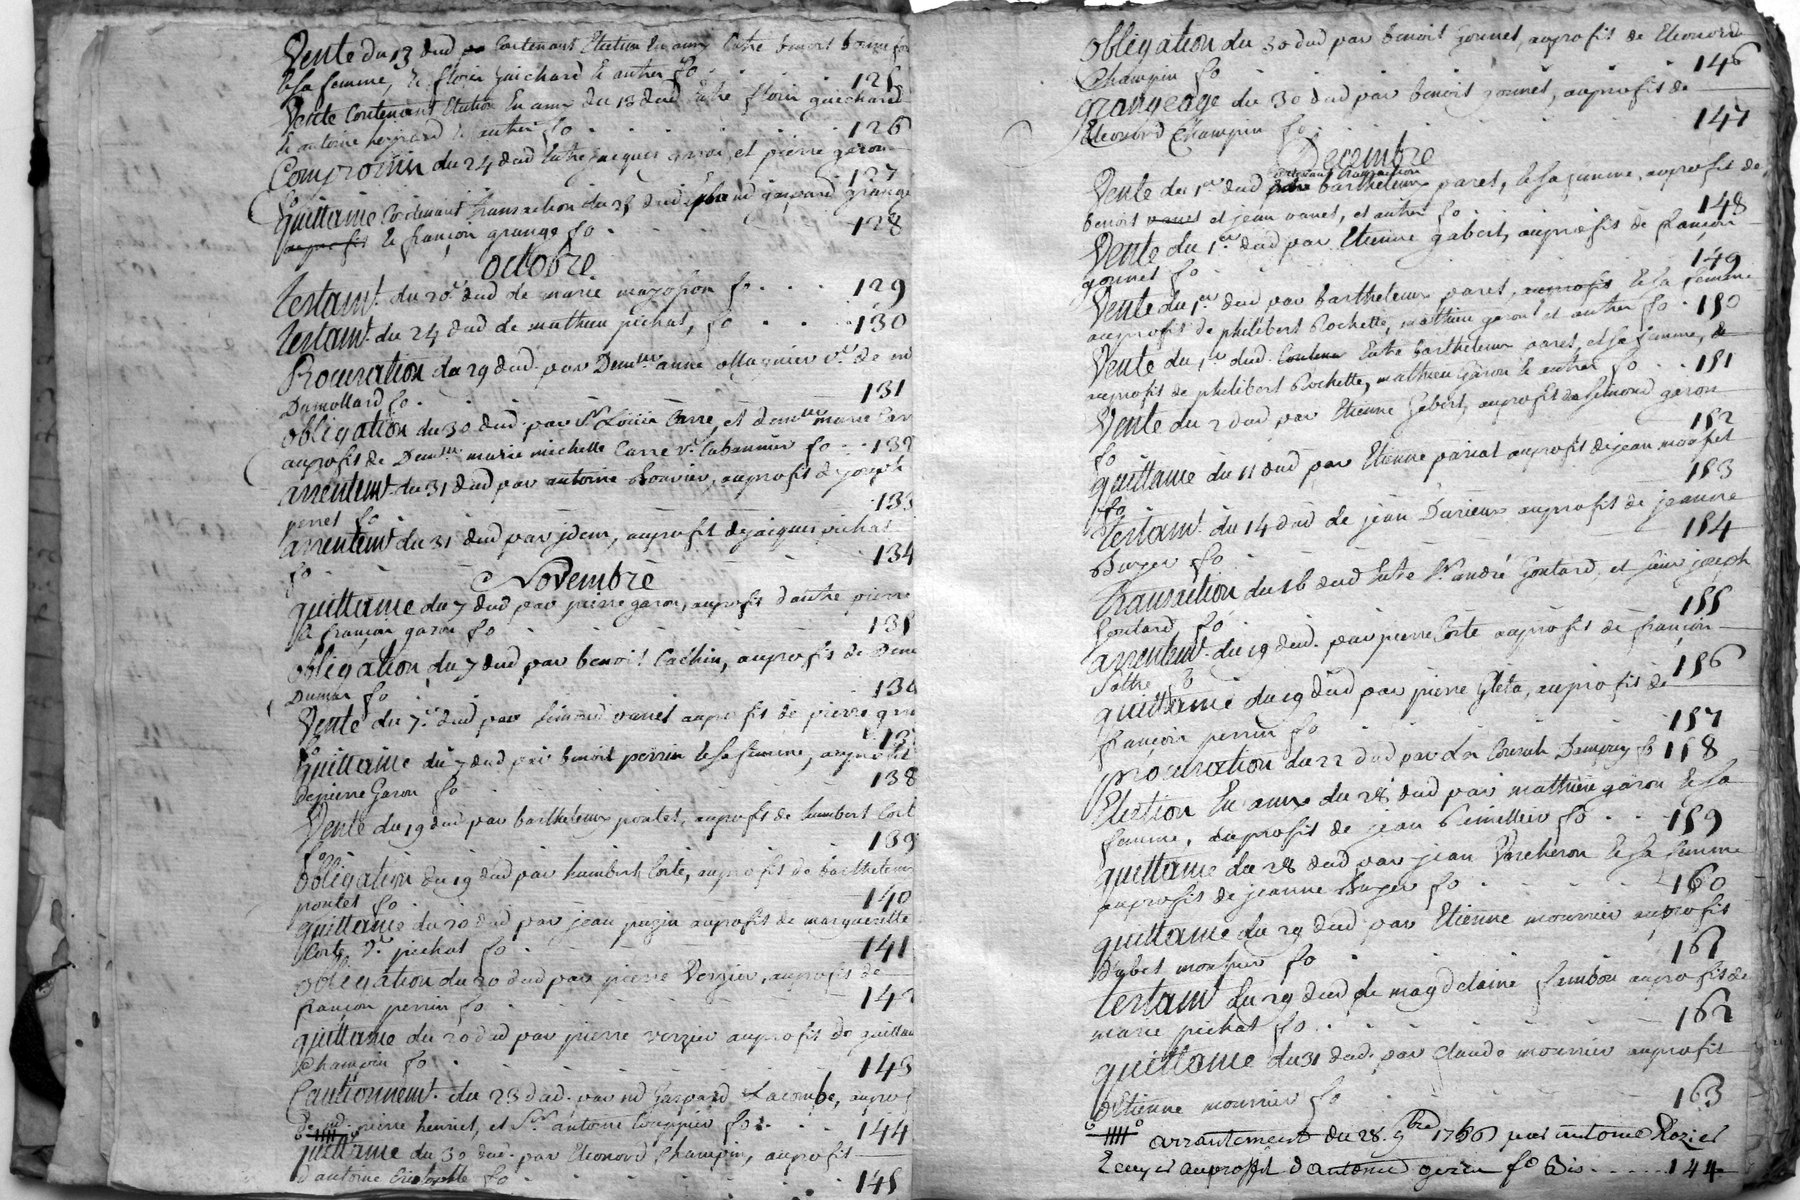 Vente du 13 dud contenant Election En amy Entre benoit bonnefon
& sa femme, & florin guichard & autres fo 125
Vente Contenant Election En amy du 13 dud Entre florin guichard
& antoine & autres fo 126
Compromis du 24 dud Entre jacques et pierre garon
fo 127
quittance Contenant transaction du 28 dud gaspard grange
& françois grange fo 128
octobre
testamt du 20e dud de marie fo 129
testamt du 24 dud de mathieu pichat, fo 130
Procuration du 29 dud par Demlle anne ve de
Dumollard fo 131
obligation du 30 dud par Sr Louis Carre, et demlle marie Carr
au profit de Demlle marie michelle Carre ve Cabannier fo 132
arrentemt du 31 dud par antoine Bouvier, au profit de joseph
perret fo 133
arrentemt du 31 dud par idem, au profit de jacques pichat
fo 134
Novembre
quittance du 7 dud par pierre garon, au profit d'autre pierre
& françois garon fo 135
obligation du 7 dud par benoit Cachin, au profit de
Dumas fo 136
Vente du 7e dud par Simond vanet au profit de pierre
fo 137
quittance du 7 dud par benoit perrin & sa femme, au profit
de pierre Garon fo 138
Vente du 19 dud par barthelemy pontet, au profit de humbert Corte
fo 139
obligation du 19 dud par humbert Corte, au profit de barthelemy
pontet fo 140
quittance du 20 dud par jean puzin au profit de margueritte
Corte ve pichat fo 141
obligation du 20 dud par pierre Verzier, au profit de
françois perrin fo 142
quittance du 20 dud par pierre verzier au profit de guillau
Champin fo 143
Cautionnemt du 23 dud par md Gaspard Lacombe, au prof
de md pierre henriet, et Sr antoine fo 144
quittance du 30 dud par Eleonord Champin, au profit
d'antoine fo 145
obligation du 30 dud par benoit gonnet, au profit de Eleonord
Champin fo 146
grangeage du 30 dud par benoit gonnet, au profit de
Eleonord Champin fo 147
Decembre
contenant transaction
Vente du 1er dud barthelemy paret, & sa femme, au profit de
benoit vanet et jean vanet, et autres fo 148
Vente du 1er dud par Etienne gabert, au profit de françois
gonnet fo 149
Vente du 1er dud par barthelemy paret, au profit & sa femme
au profit de philibert Rochette, mathieu garon et autres fo 150
Vente du 1er dud Entre barthelemy paret, et sa femme, &
au profit de philibert Rochette, mathieu garon & autres fo 151
Vente du 2 dud par Etienne Gabert, au profit de Simond garon
fo 152
quittance du 11 dud par Etienne pariat au profit de jean
fo 153
testamt du 14 dud de jean Durieux au profit de jeanne
Burger fo 154
transaction du 16 dud Entre Sr andré Goutard et Sieur joseph
Goutard fo 155
arrentemt du 19 dud par pierre Corte au profit de françois
fo 156
quittance du 19 dud par pierre Gleta, au profit de
françois perrin fo 157
procuration du 22 dud par fo 158
Election En amy du 28 dud par mathieu garon & sa
femme, au profit de jean fo 159
quittance du 28 dud par jean Varcheron & sa femme
au profit de jeanne Burger fo 160
quittance du 29 dud par Etienne mounier au profit
mounier fo 161
testamt du 29 dud de magdelaine au profit de
marie pichat fo 162
quittance du 31 dud par Claude mounier au profit
d'Etienne mounier fo 163
arrantement du 28 9bre 1766 par antoine Rozier
au profit d'antoine fo Bis 144